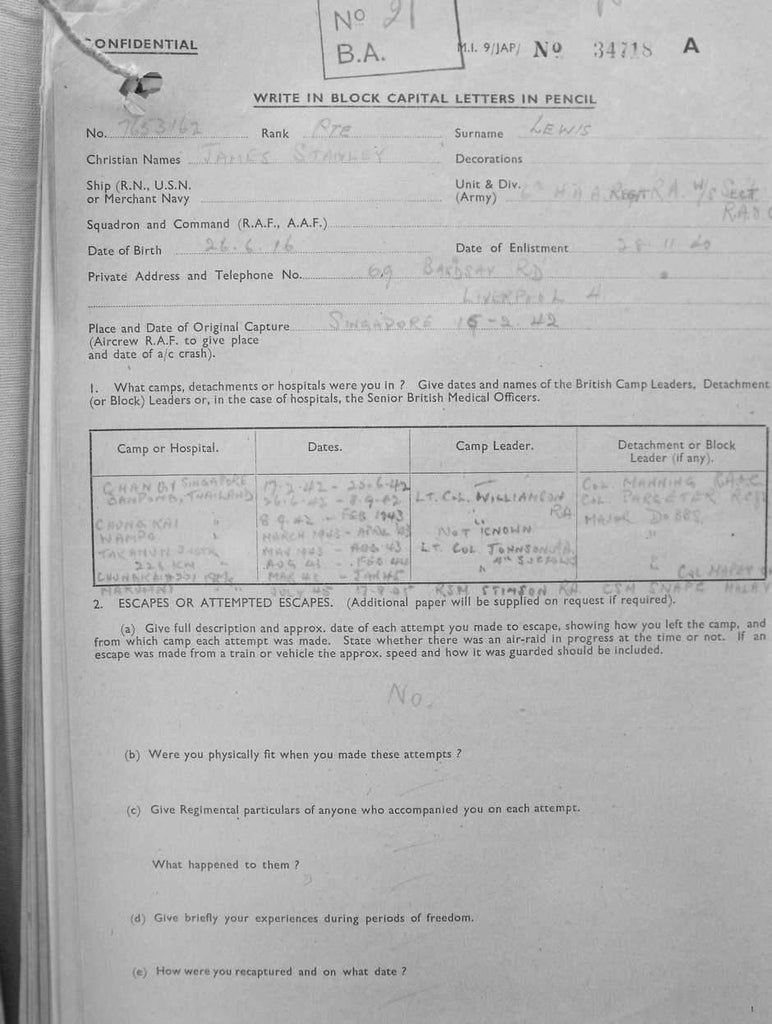 CONFIDENTIAL
No 21
B.A.
M.I. 9/JAP/ No 34718 A
WRITE IN BLOCK CAPITAL LETTERS IN PENCIL
No. 7653162 Rank PTE Surname LEWIS
Christian Names JAMES STANLEY Decorations
Ship (R.N., U.S.N. or Merchant Navy
Unit & Div. (Army) H A A REGT R.A. W/S SECT
R.A.O.C
Squadron and Command (R.A.F., A.A.F.)
Date of Birth 26.6.16 Date of Enlistment 28.11.40
Private Address and Telephone No. 69 BARDSAY RD
LIVERPOOL 4
Place and Date of Original Capture SINGAPORE 15-2.42
(Aircrew R.A.F. to give place
and date of a/c crash).
1. What camps, detachments or hospitals were you in ? Give dates and names of the British Camp Leaders, Detachment
(or Block) Leaders or, in the case of hospitals, the Senior British Medical Officers.
Camp or Hospital. Dates. Camp Leader. Detachment or Block
Leader (if any).
CHANGI SINGAPORE 17.2.42 - 23.6.42 — COL. MANNING RAOC
BANPONG, THAILAND 26.6.42 - 8.9.42 LT. COL. WILLIAMSON RA COL. PARGETER
CHUNG KAI " 8.9.42 - FEB 1943 " MAJOR DOBBS
WAMPO " MARCH 1943 - APRIL 43 NOT KNOWN "
TAKANUN MAY 1943 - AUG 43 LT. COL JOHNSON
226 KM " AUG 43 - FEB 44 4TH SUFFOLKS "
CHUNGKAI MAR 44 - JAN 45 " COL
" JULY 45 17.8.45 RSM STIMSON RA. CSM SNAPE MALAY
2. ESCAPES OR ATTEMPTED ESCAPES. (Additional paper will be supplied on request if required).
(a) Give full description and approx. date of each attempt you made to escape, showing how you left the camp, and
from which camp each attempt was made. State whether there was an air-raid in progress at the time or not. If an
escape was made from a train or vehicle the approx. speed and how it was guarded should be included.
No.
(b) Were you physically fit when you made these attempts ?
(c) Give Regimental particulars of anyone who accompanied you on each attempt.
What happened to them ?
(d) Give briefly your experiences during periods of freedom.
(e) How were you recaptured and on what date ?
1